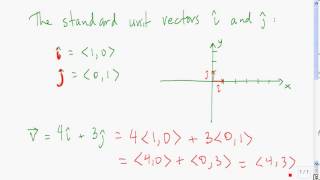 The standard unit vectors î and ĵ :
î = <1,0>
ĵ = <0,1>
y
x
ĵ
î
v⃗ = 4î + 3ĵ = 4<1,0> + 3<0,1>
= <4,0> + <0,3> = <4,3>
1/1